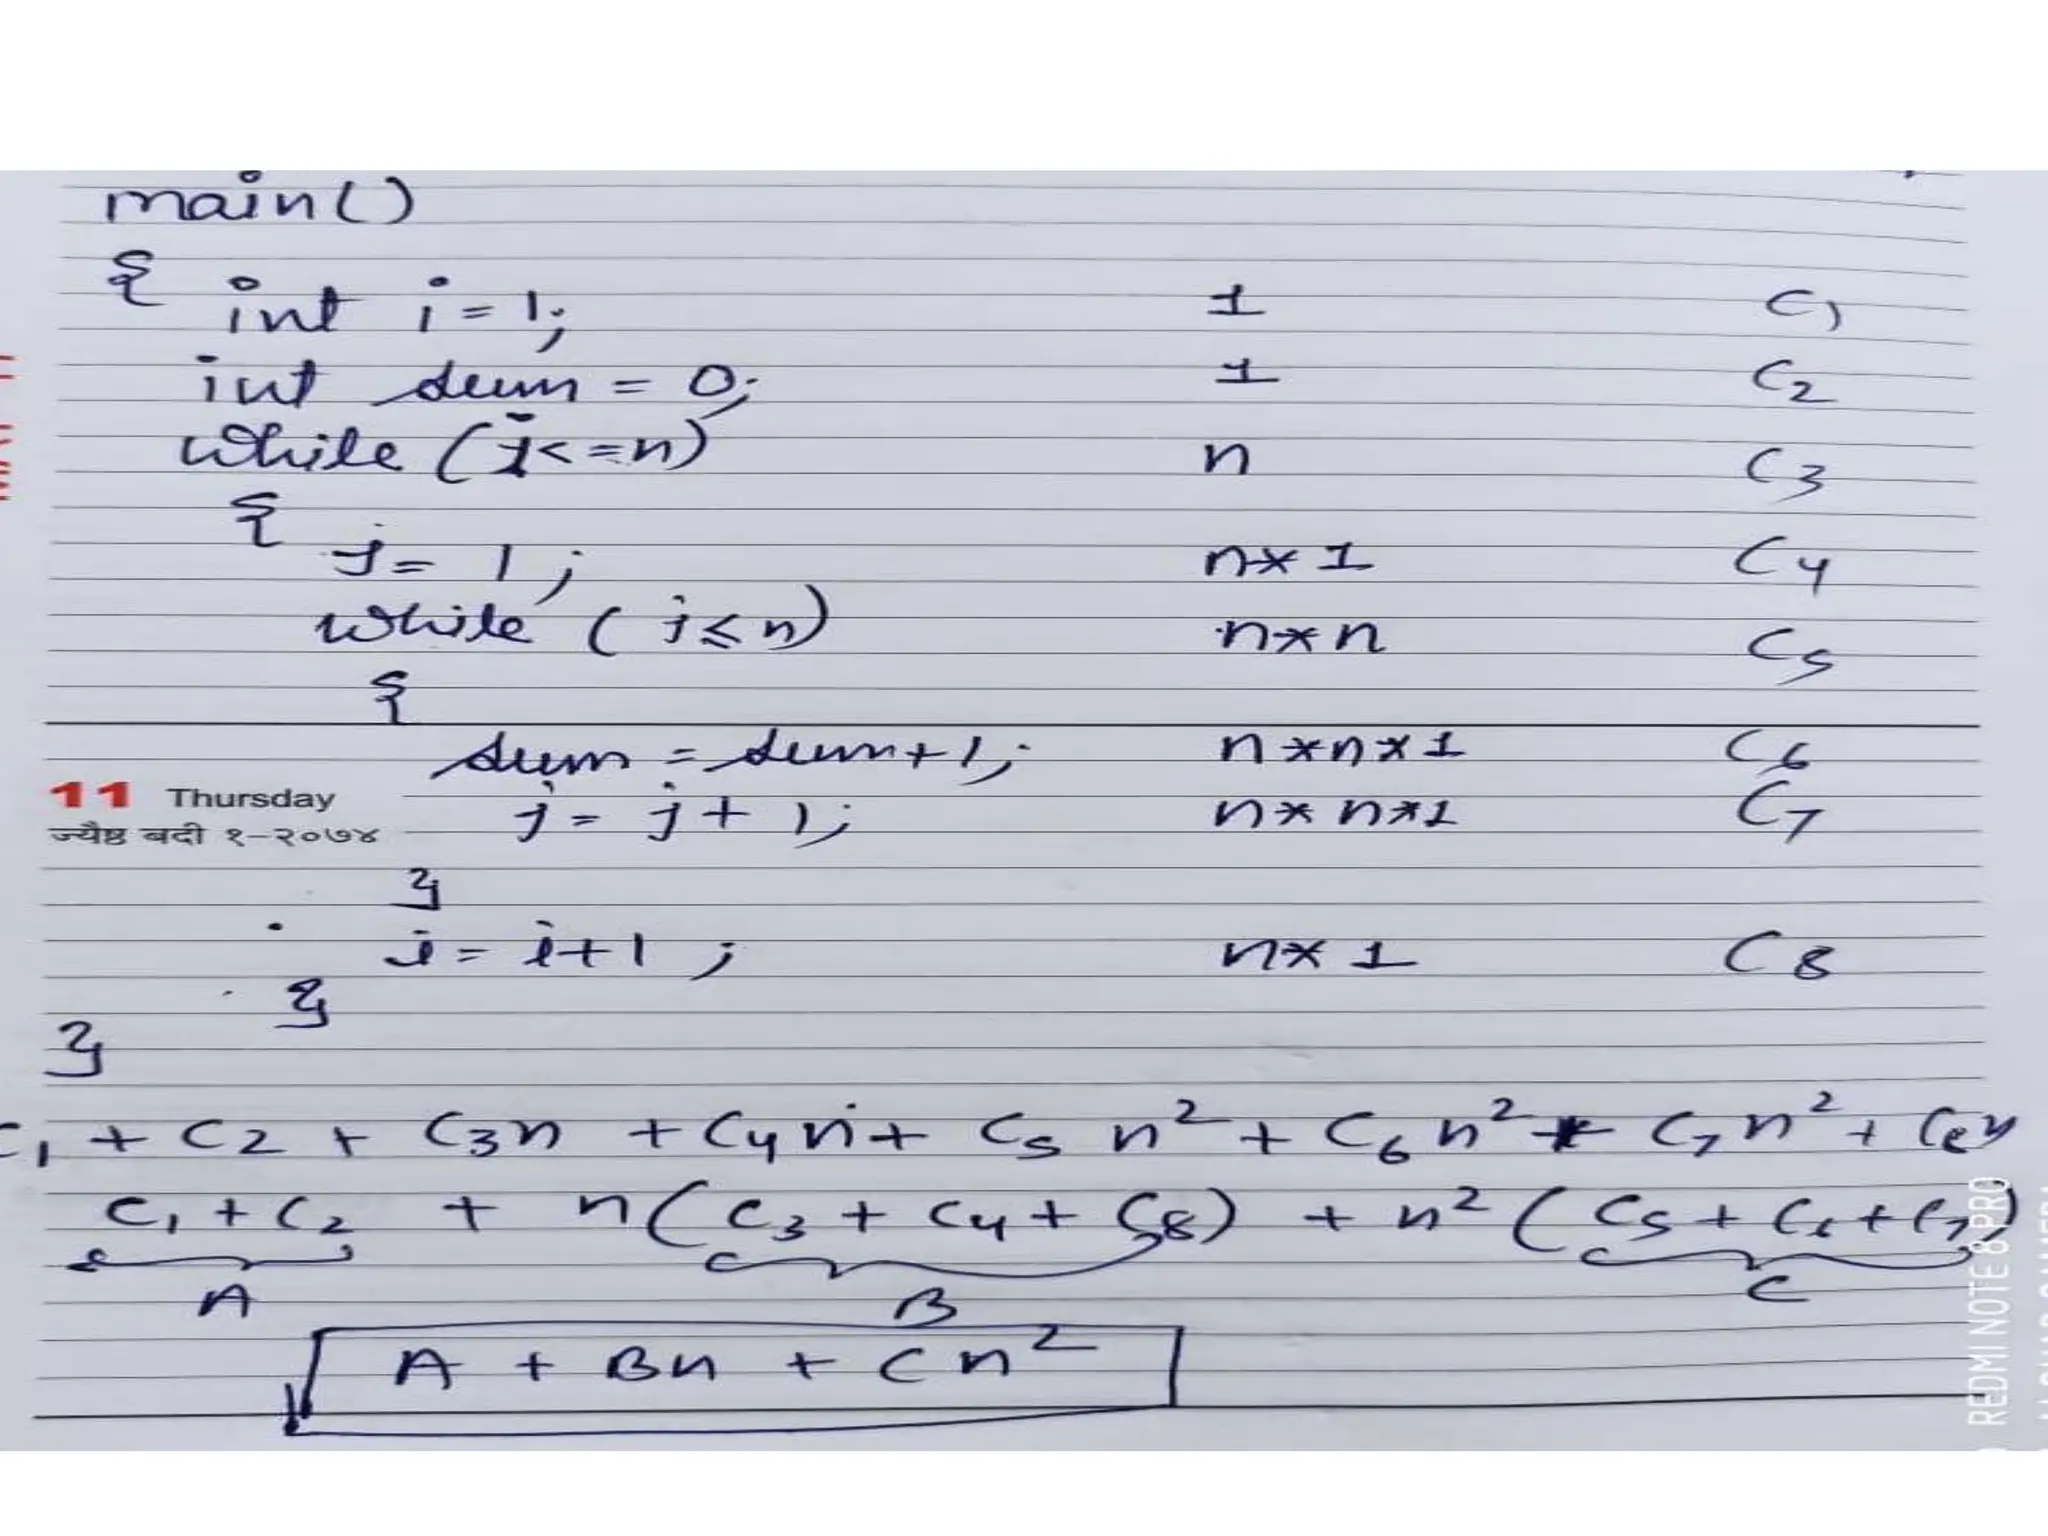 main()
{ int i = 1; 1 C1
int sum = 0; 1 C2
while (i<=n) n C3
{
j = 1; n*1 C4
while (j≤n) n*n C5
{
sum = sum+1; n*n*1 C6
11 Thursday
j = j+1; n*n*1 C7
ज्यैष्ठ बदी १-२०७४
}
i = i+1; n*1 C8
}
}
C1 + C2 + C3n + C4n + C5 n² + C6 n² + C7 n² + C8n
C1 + C2 + n(C3 + C4 + C8) + n² (C5 + C6 + C7)
A B C
A + Bn + Cn²
REDMI NOTE 8 PRO